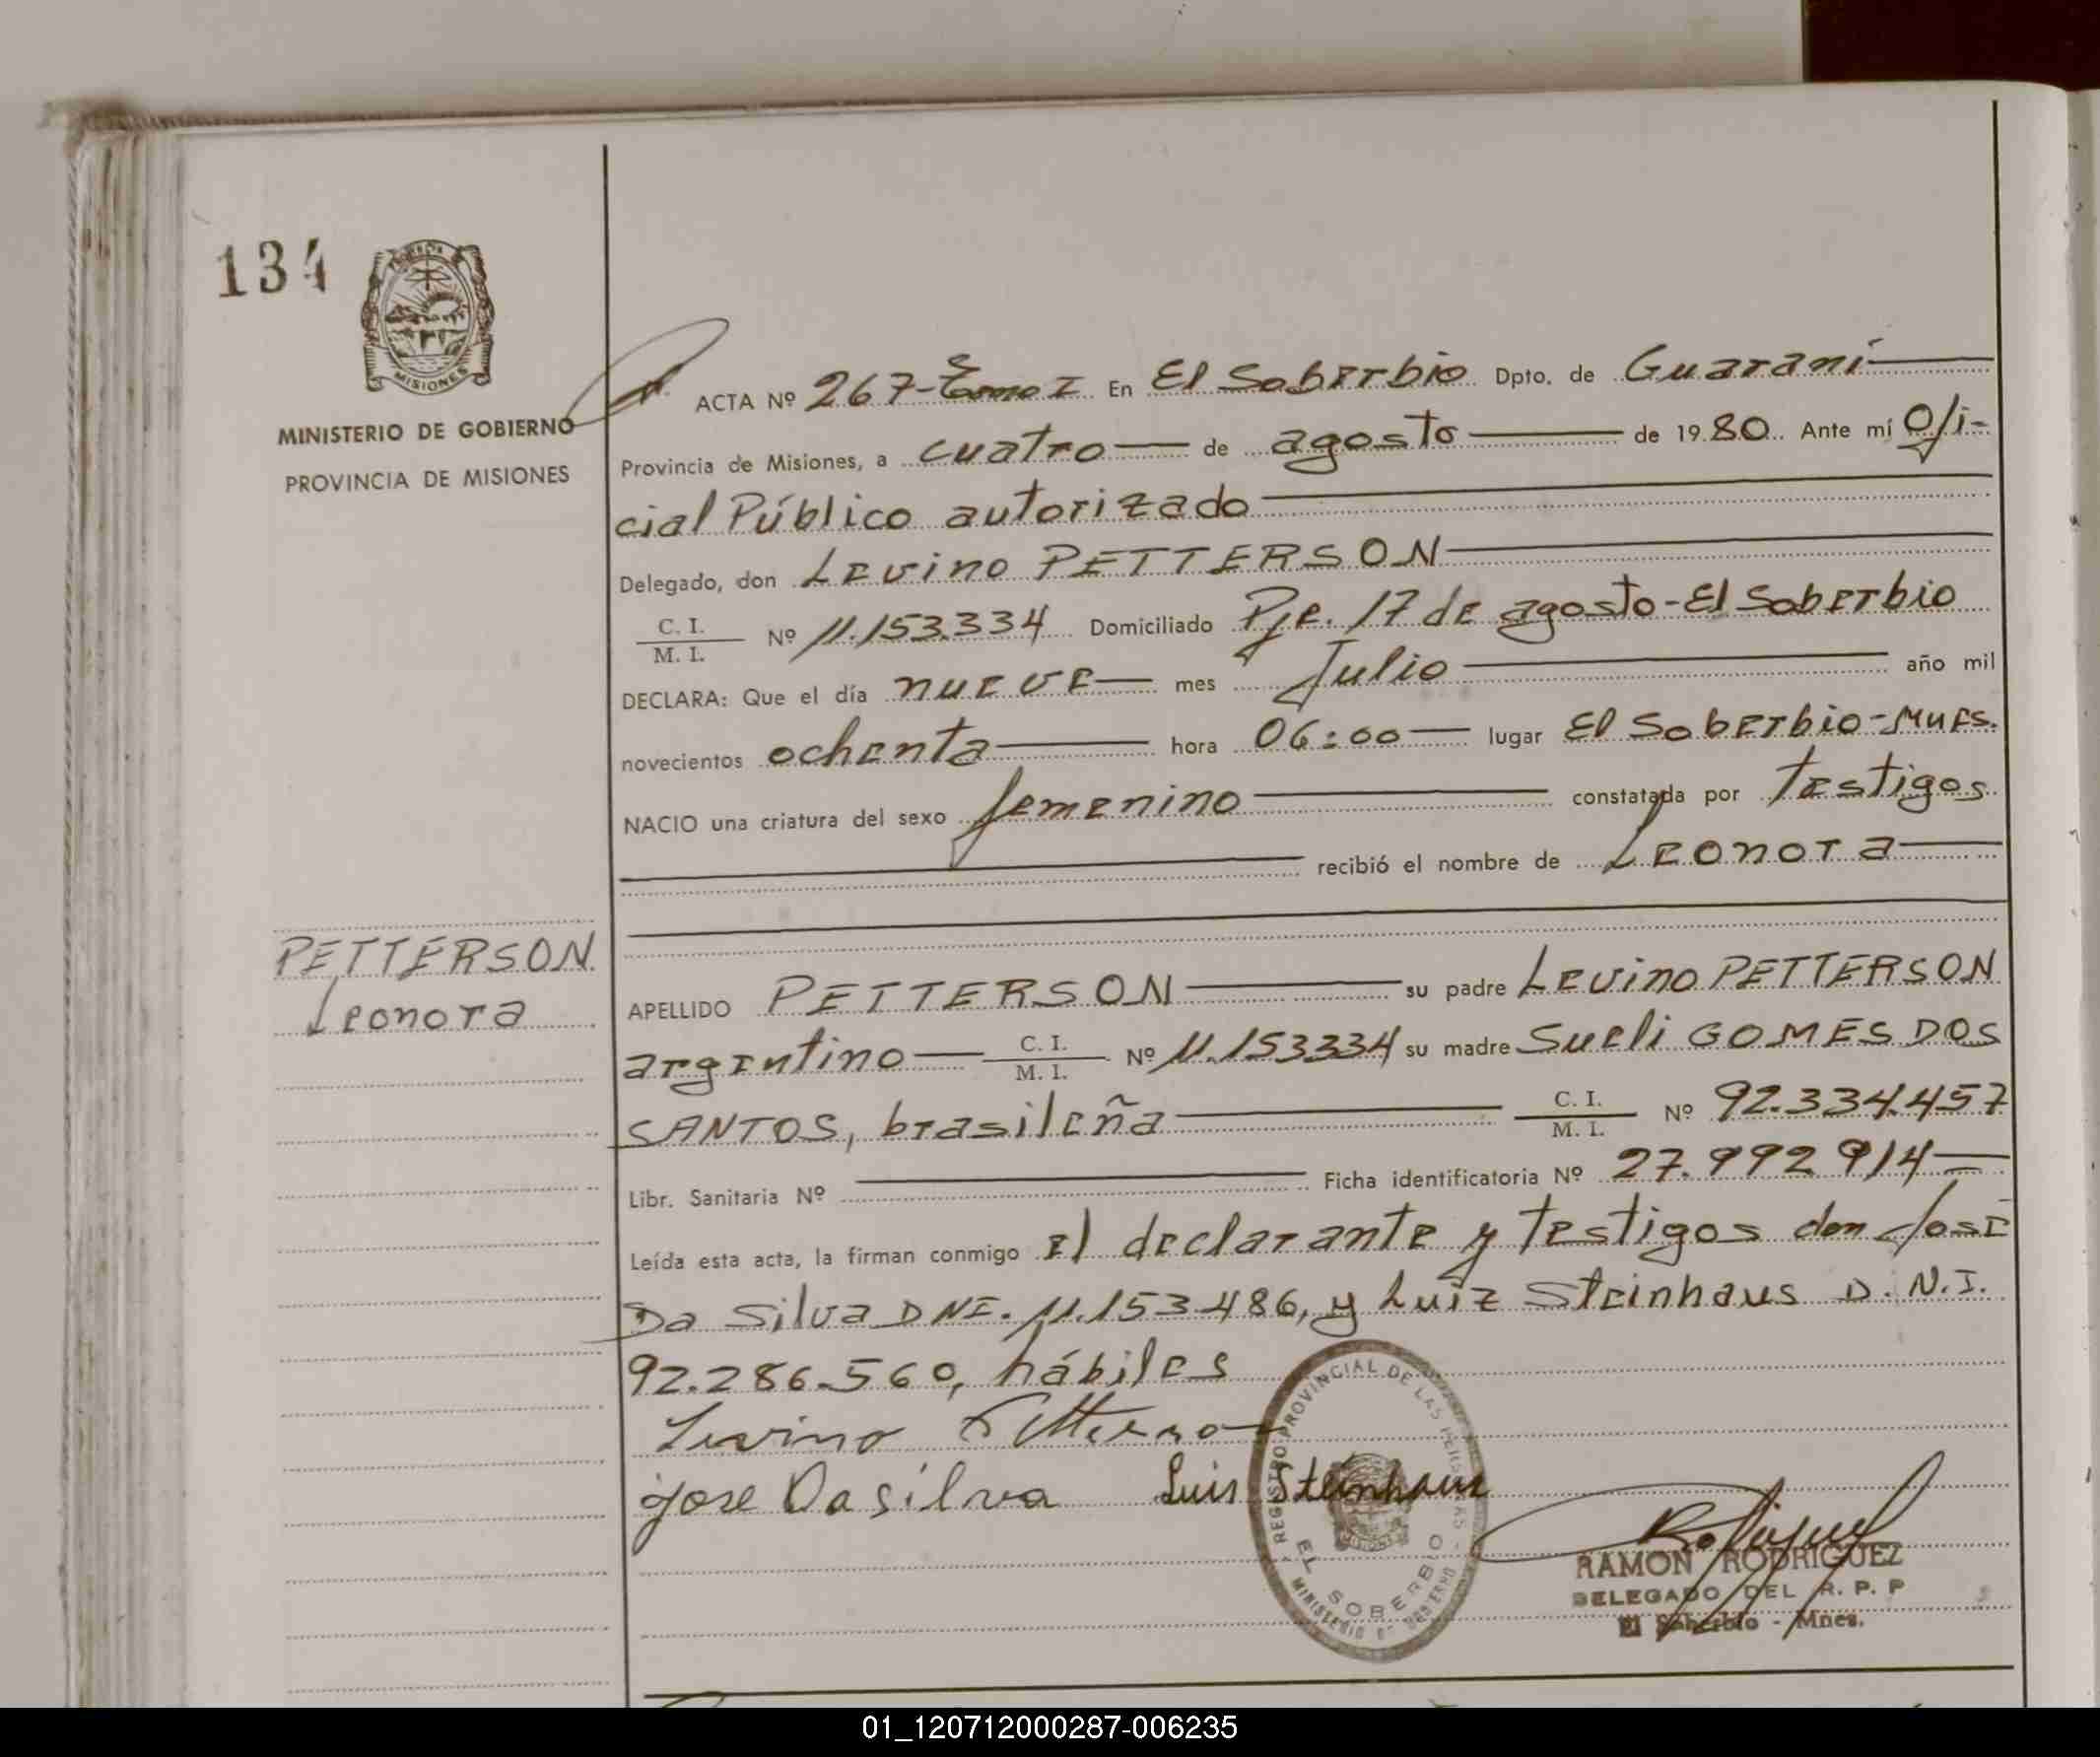 134
MISIONES
MINISTERIO DE GOBIERNO
PROVINCIA DE MISIONES
ACTA Nº 267-Tomo I En El Soberbio Dpto. de Guaraní
Provincia de Misiones, a cuatro de agosto de 1980. Ante mí Ofi-
cial Público autorizado
Delegado, don Levino PETTERSON
C. I.
M. I. Nº 11.153.334 Domiciliado Pje. 17 de agosto-El Soberbio
DECLARA: Que el día nueve mes Julio año mil
novecientos ochenta hora 06:00 lugar El Soberbio-Mnes.
NACIO una criatura del sexo femenino constatada por testigos
recibió el nombre de Leonora
PETTERSON
Leonora
APELLIDO PETTERSON su padre Levino PETTERSON
argentino C. I.
M. I. Nº 11.153334 su madre Sueli GOMES DOS
SANTOS, brasileña C. I.
M. I. Nº 92.334.457
Libr. Sanitaria Nº Ficha identificatoria Nº 27.992914
Leída esta acta, la firman conmigo el declarante y testigos don José
Da Silva DNI. 11.153.486, y Luiz Steinhaus D.N.I.
92.286.560, hábiles
Levino Petterson
jose Da silva Luis Steinhaus
REGISTRO PROVINCIAL DE LAS PERSONAS
EL SOBERBIO
MINISTERIO DE GOBIERNO
RAMON RODRIGUEZ
DELEGADO DEL R. P. P
El Soberbio - Mnes.
01_120712000287-006235